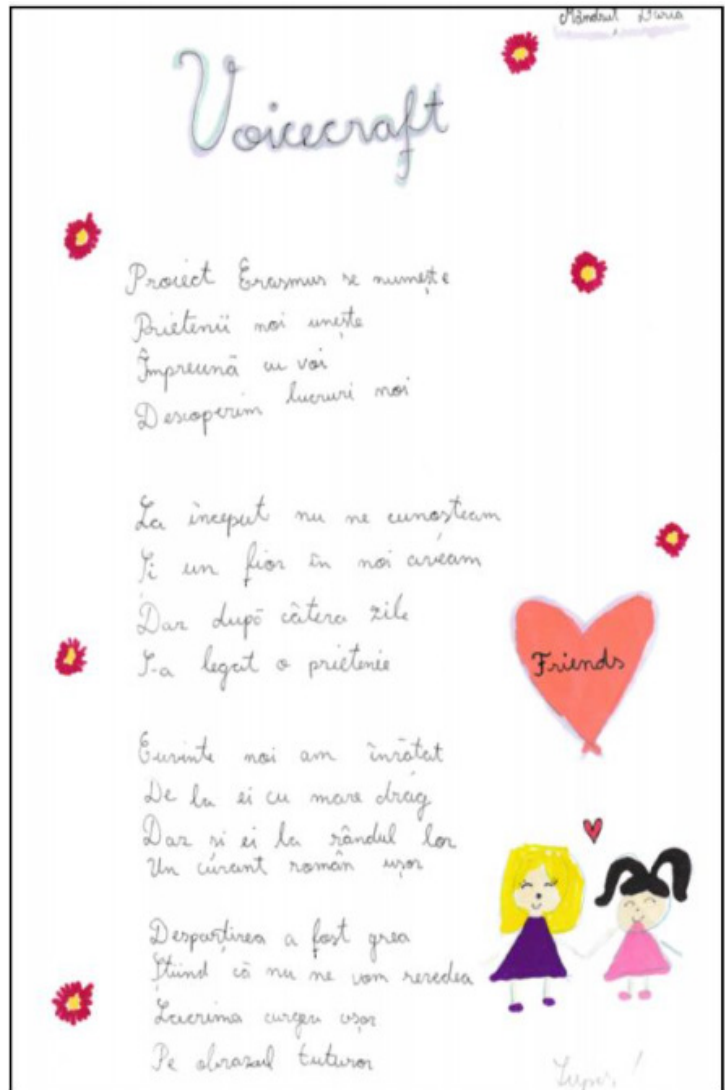 Mândruț Daria
Voicecraft
Proiect Erasmus se numește
Prietenii noi unește
Împreună cu voi
Descoperim lucruri noi
La început nu ne cunoșteam
Și un fior în noi aveam
Dar după câteva zile
S-a legat o prietenie
Cuvinte noi am învățat
De la ei cu mare drag
Dar și ei la rândul lor
Un cuvânt român ușor
Despărțirea a fost grea
Știind că nu ne vom revedea
Lacrima curgea ușor
Pe obrazul tuturor
Friends
Super!